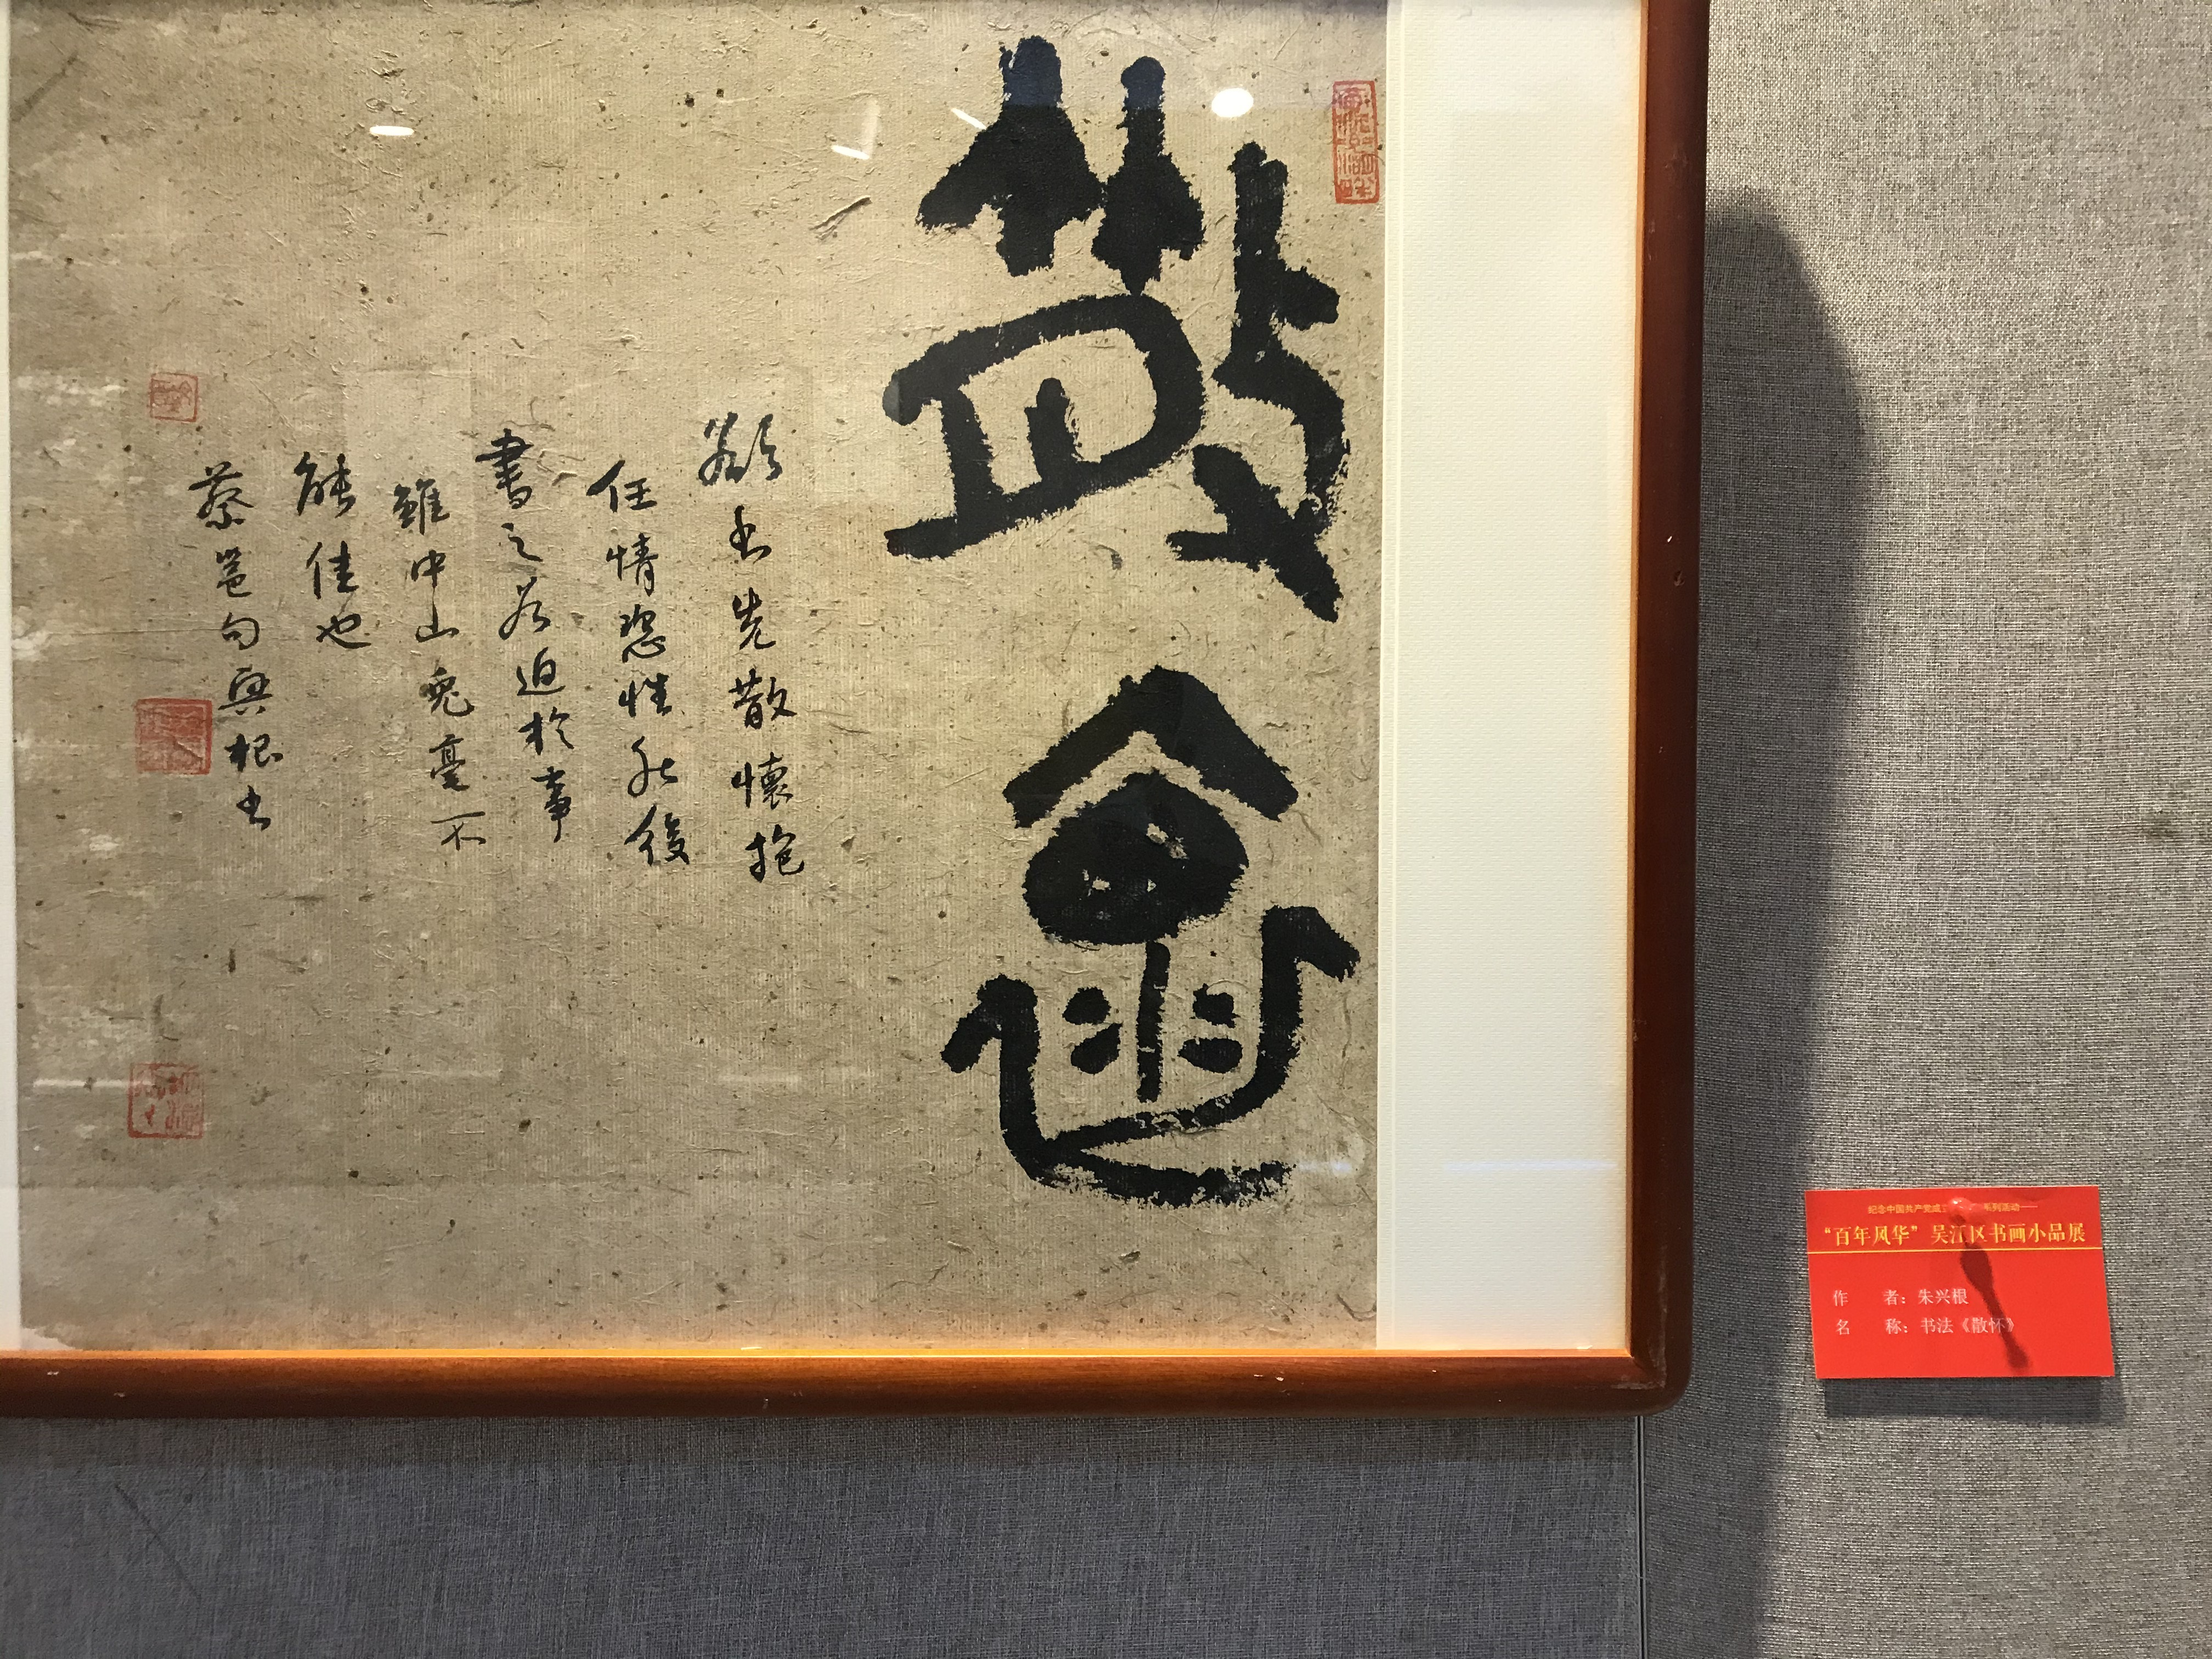 散褱
欲书先散懷抱
任情恣性然後
書之若迫於事
雖中山兔毫不
能佳也
蔡邕句興根书
纪念中国共产党成 系列活动——
“百年风华”吴江区书画小品展
作 者：朱兴根
名 称：书法《散怀》